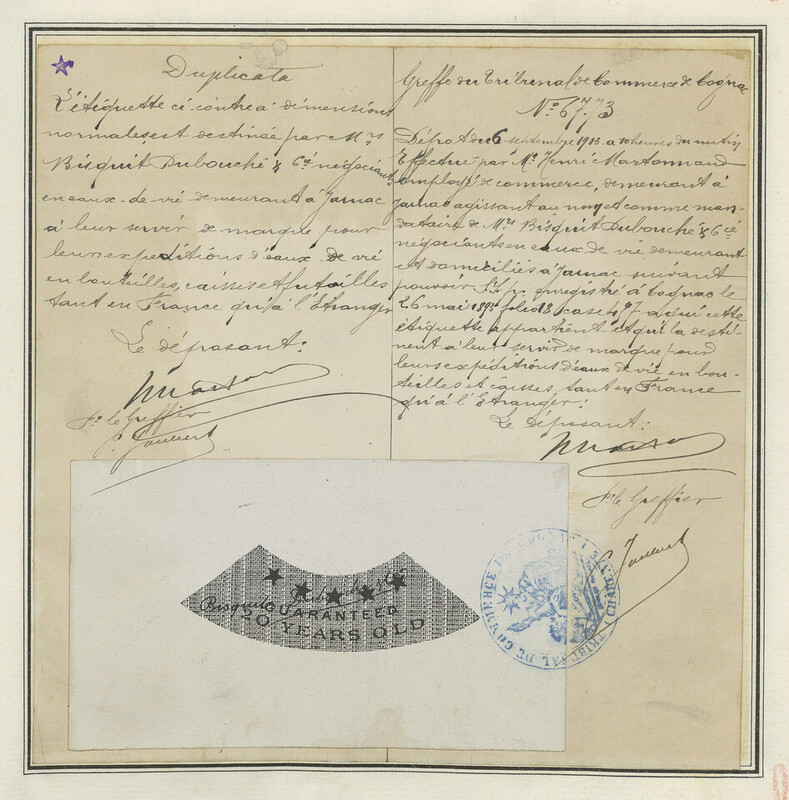 Duplicata
L'étiquette ci-contre à dimensions
normales est destinée par Mrs
Bisquit Dubouché & Cie négociants
en eaux-de-vie demeurant à Jarnac
à leur servir de marque pour
leurs expéditions d'eaux de vie
en bouteilles, caisses et futailles
tant en France qu'à l'Etranger
Le déposant:
Pr le Greffier
Greffe du Tribunal de Commerce de Cognac
No 6773
Dépôt du 6 septembre 1913 à 10 heures du matin
Effectué par Mr Henri Martonnaud
employé de commerce, demeurant à
Jarnac agissant au nom et comme man-
dataire de Mrs Bisquit Dubouché & Cie
négociants en eaux de vie demeurant
et domiciliés à Jarnac suivant
pouvoir enregistré à Cognac le
26 mai 1893 folio 18 case 497 à qui cette
étiquette appartient et qui la desti-
nent à leur servir de marque pour
leurs expéditions d'eaux de vie en bou-
teilles et caisses, tant en France
qu'à l'Etranger:
Le déposant:
Pr le Greffier
Bisquit Dubouché & Co
GUARANTEED
20 YEARS OLD
TRIBUNAL DE COMMERCE DE COGNAC